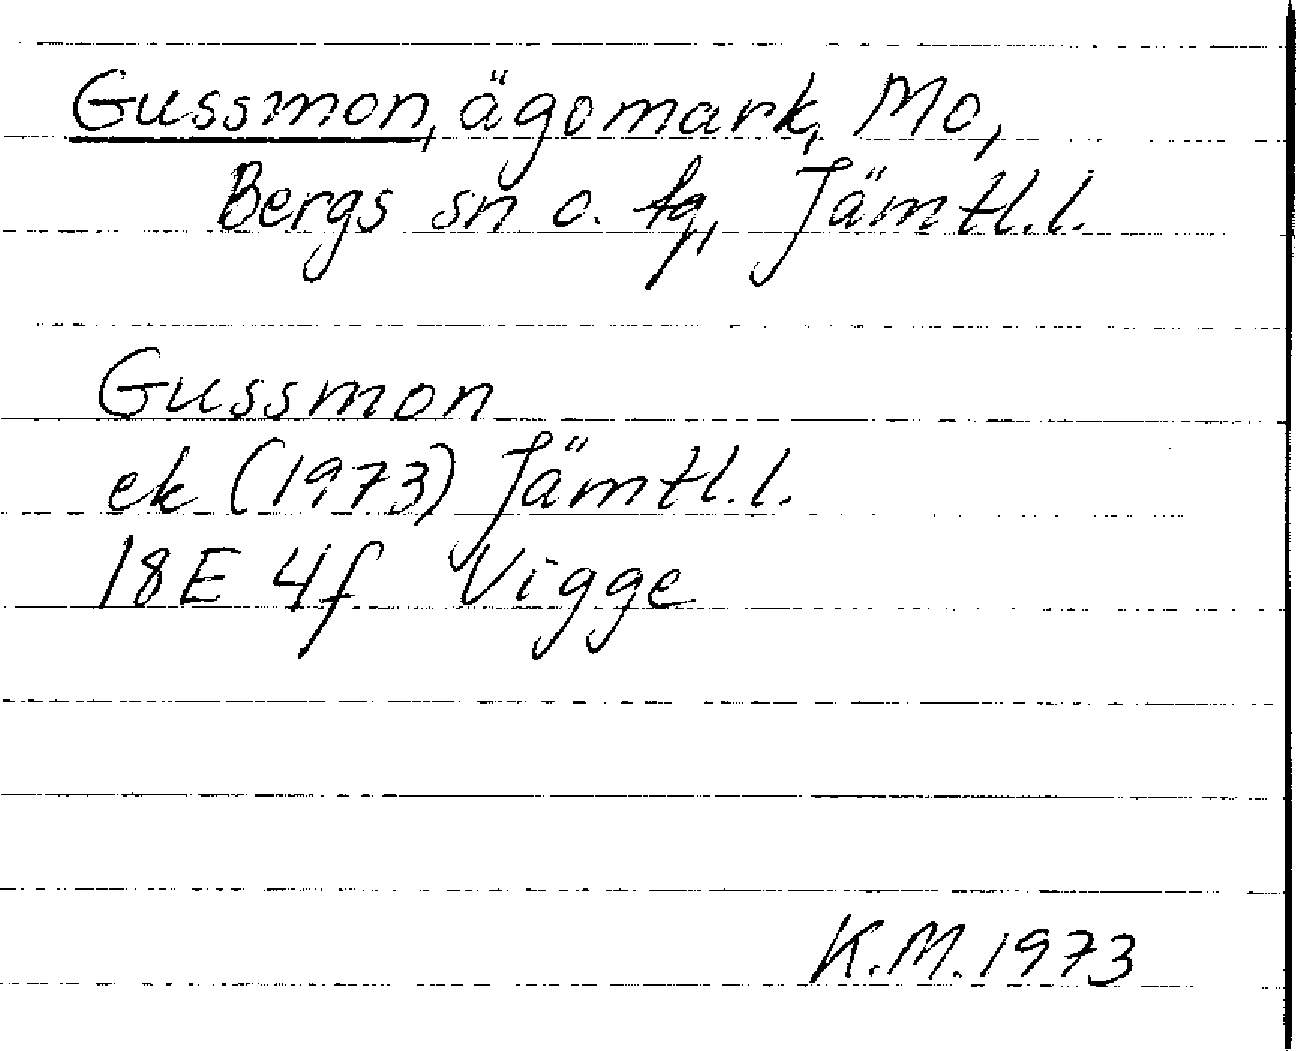 Gussmon, ägomark, Mo,
Bergs sn o. tg, Jämtl.l.
Gussmon
ek (1973) Jämtl.l.
18E 4f Vigge
K.M. 1973